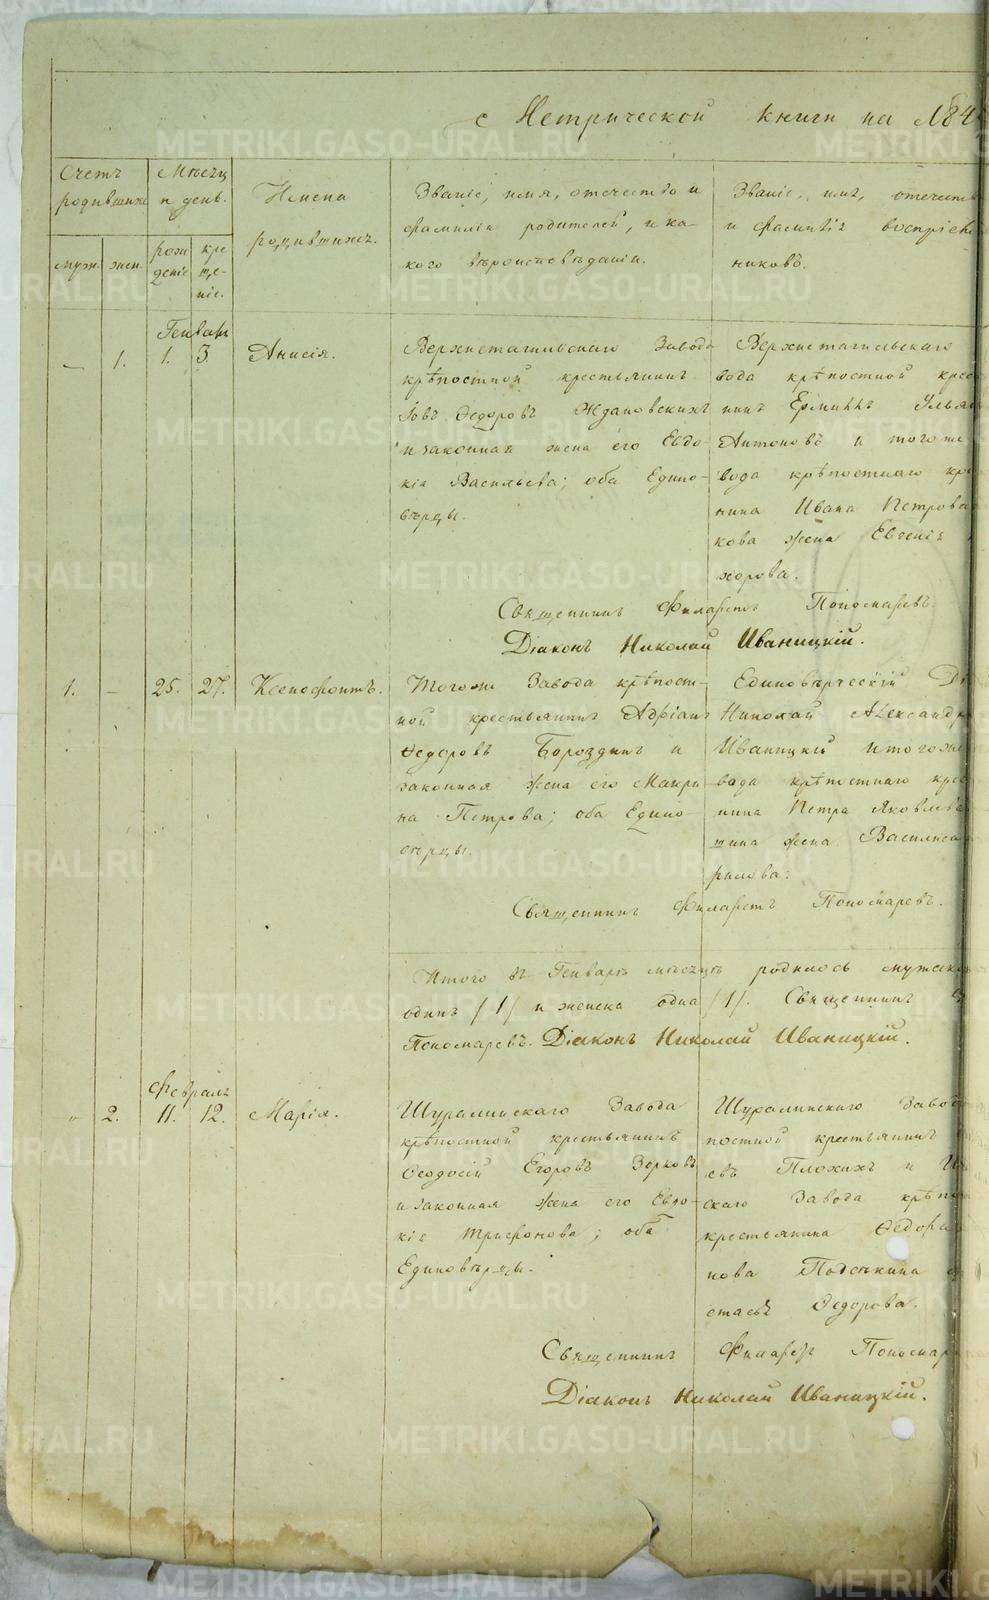 с Метрической книги на 184
Счетъ родившихся
Мѣсяцъ и день.
Имена родившихся.
Званіе, имя, отечество и фамилія родителей, и какого вѣроисповѣданія.
Званіе, имя, отечеств и фамилія воспріем никовъ.
муж. жен. рожденіе крещеніе.
Генварь
— 1. 1. 3 Анисія.
Верхнетагильскаго Завода
крѣпостной крестьянинъ
Іовъ Ѳедоровъ Ждановскихъ
и законная жена его Евдо-
кія Васильева; оба Едино-
вѣрцы.
Верхнетагильскаго
вода крѣпостной крес
нинъ Ермиллъ Улья
Антоновъ и тогоже
вода крѣпостнаго кре
нина Ивана Петрова
кова жена Евгенія
дорова.
Священникъ Филаретъ Пономаревъ.
Діаконъ Николай Иваницкій.
1. — 25. 27. Ксенофонтъ.
Тогоже Завода крѣпост-
ной крестьянинъ Адріанъ
Ѳедоровъ Бороздинъ и
законная жена его Маври
на Петрова; оба Едино-
вѣрцы.
Единовѣрческій Ді
Николай Александро
Иваницкій и тогоже
вода крѣпостнаго крес
нина Петра Яковлева
шина жена Василиса
рилова:
Священникъ Филаретъ Пономаревъ.
Итого въ Генварѣ мѣсяцѣ родилось мужеска
одинъ /1/ и женска одна /1/. Священникъ
Пономаревъ. Діаконъ Николай Иваницкій.
Февраль
" 2. 11. 12. Марія.
Шуралинскаго Завода
крѣпостной крестьянинъ
Ѳеодосій Егоровъ Зерковъ
и законная жена его Евдо-
кія Трифонова; оба
Единовѣрцы.
Шуралинскаго Завод
постной крестьянинъ
евъ Плохихъ и
скаго Завода крѣпо
крестьянина Ѳедора
нова Подсекина
стасья Ѳедорова.
Священникъ Филаретъ Пономар
Діаконъ Николай Иваницкій.
METRIKI.GASO-URAL.RU